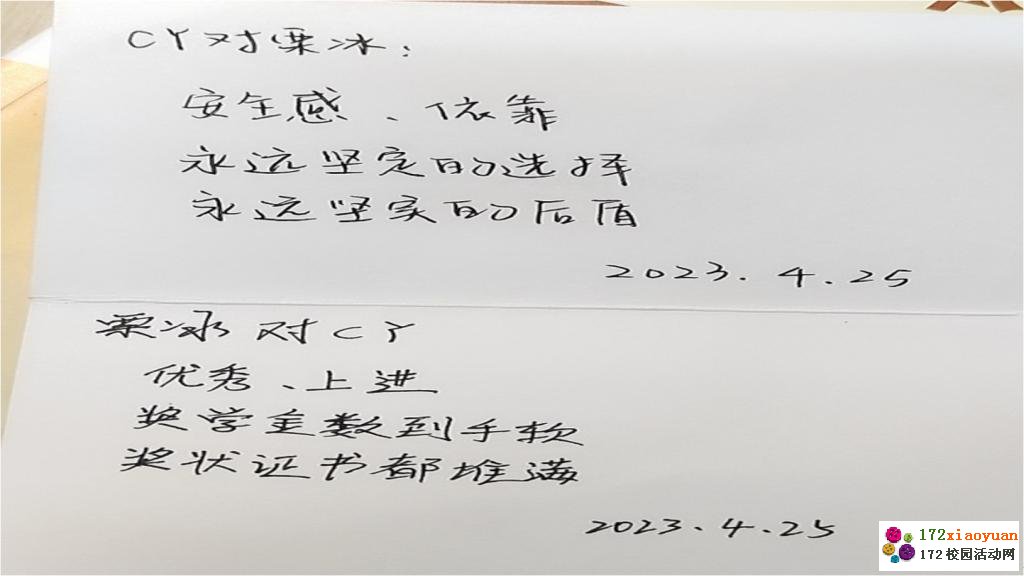 CY对栗冰：
安全感、依靠
永远坚定的选择
永远坚实的后盾
2023.4.25
栗冰对CY
优秀、上进
奖学金数到手软
奖状证书都堆满
2023.4.25
172xiaoyuan
172校园活动网